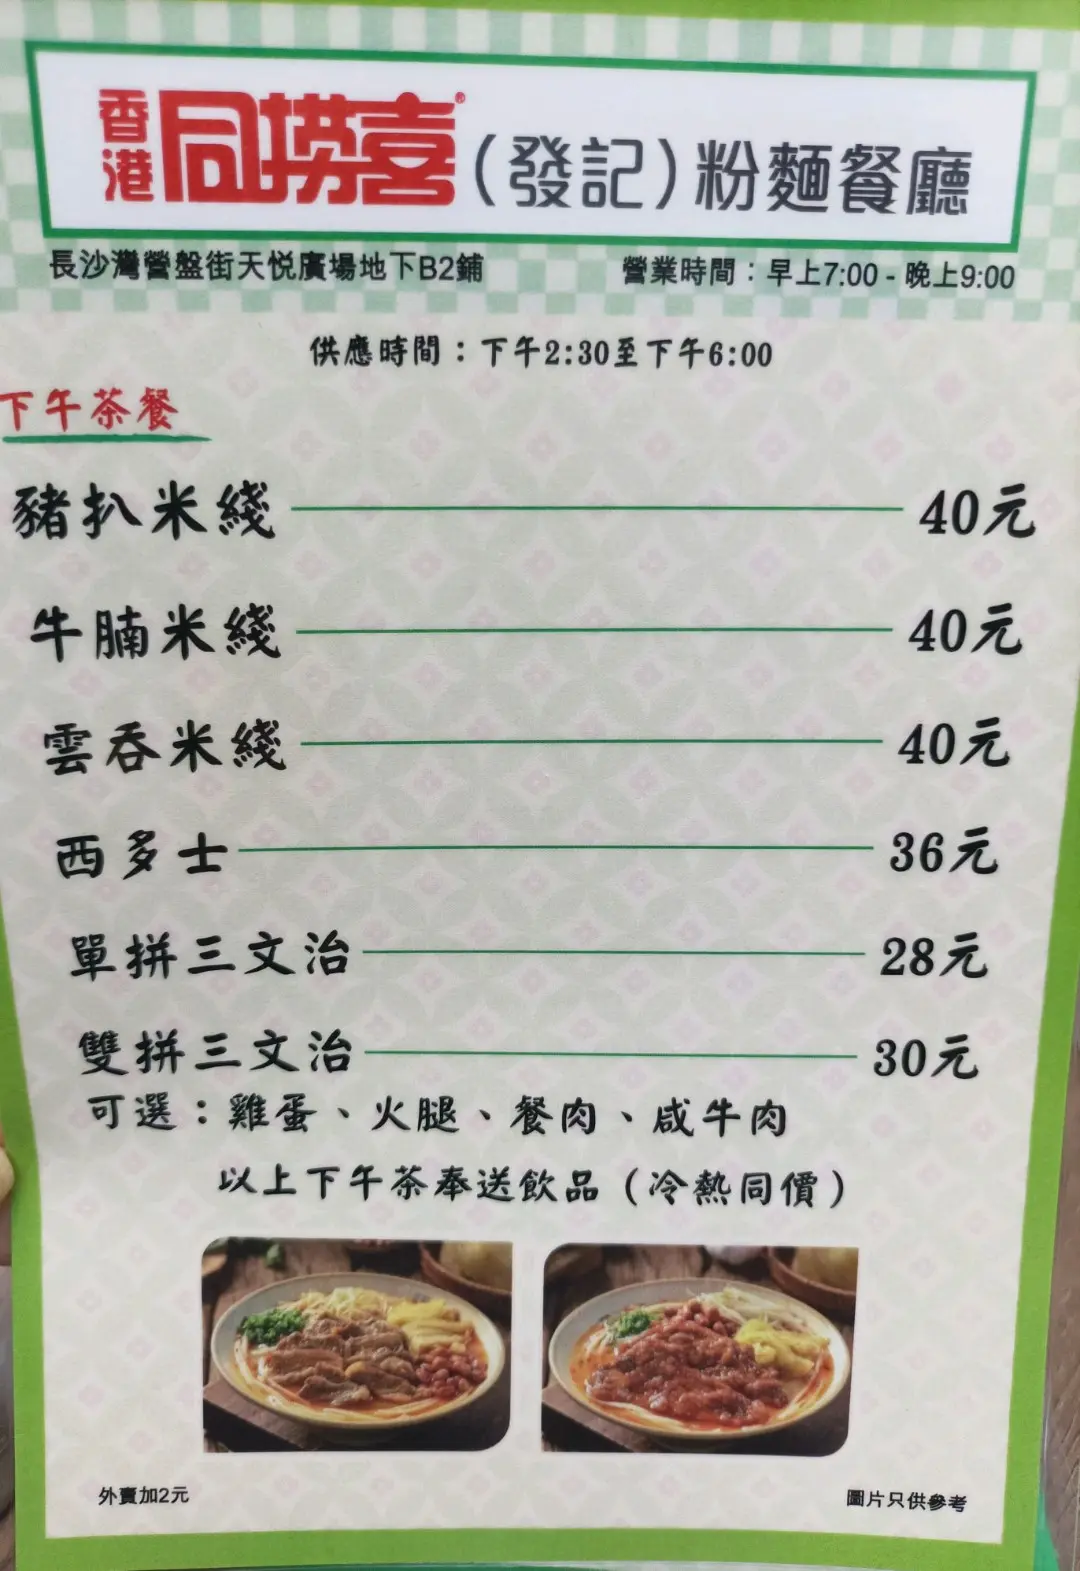 香港同撈喜®(發記)粉麵餐廳
長沙灣營盤街天悦廣場地下B2鋪 營業時間：早上7:00 - 晚上9:00
供應時間：下午2:30至下午6:00
下午茶餐
豬扒米綫 40元
牛腩米綫 40元
雲吞米綫 40元
西多士 36元
單拼三文治 28元
雙拼三文治 30元
可選：雞蛋、火腿、餐肉、咸牛肉
以上下午茶奉送飲品（冷熱同價）
外賣加2元 圖片只供參考